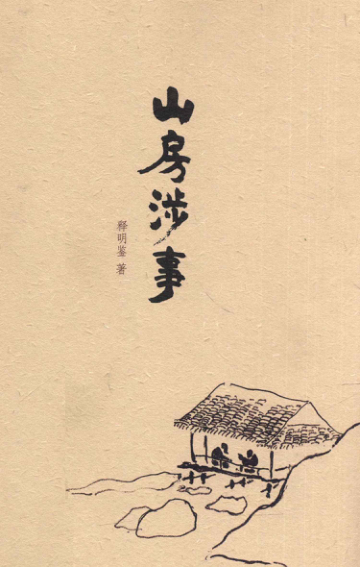 山房涉事
释明鉴 著